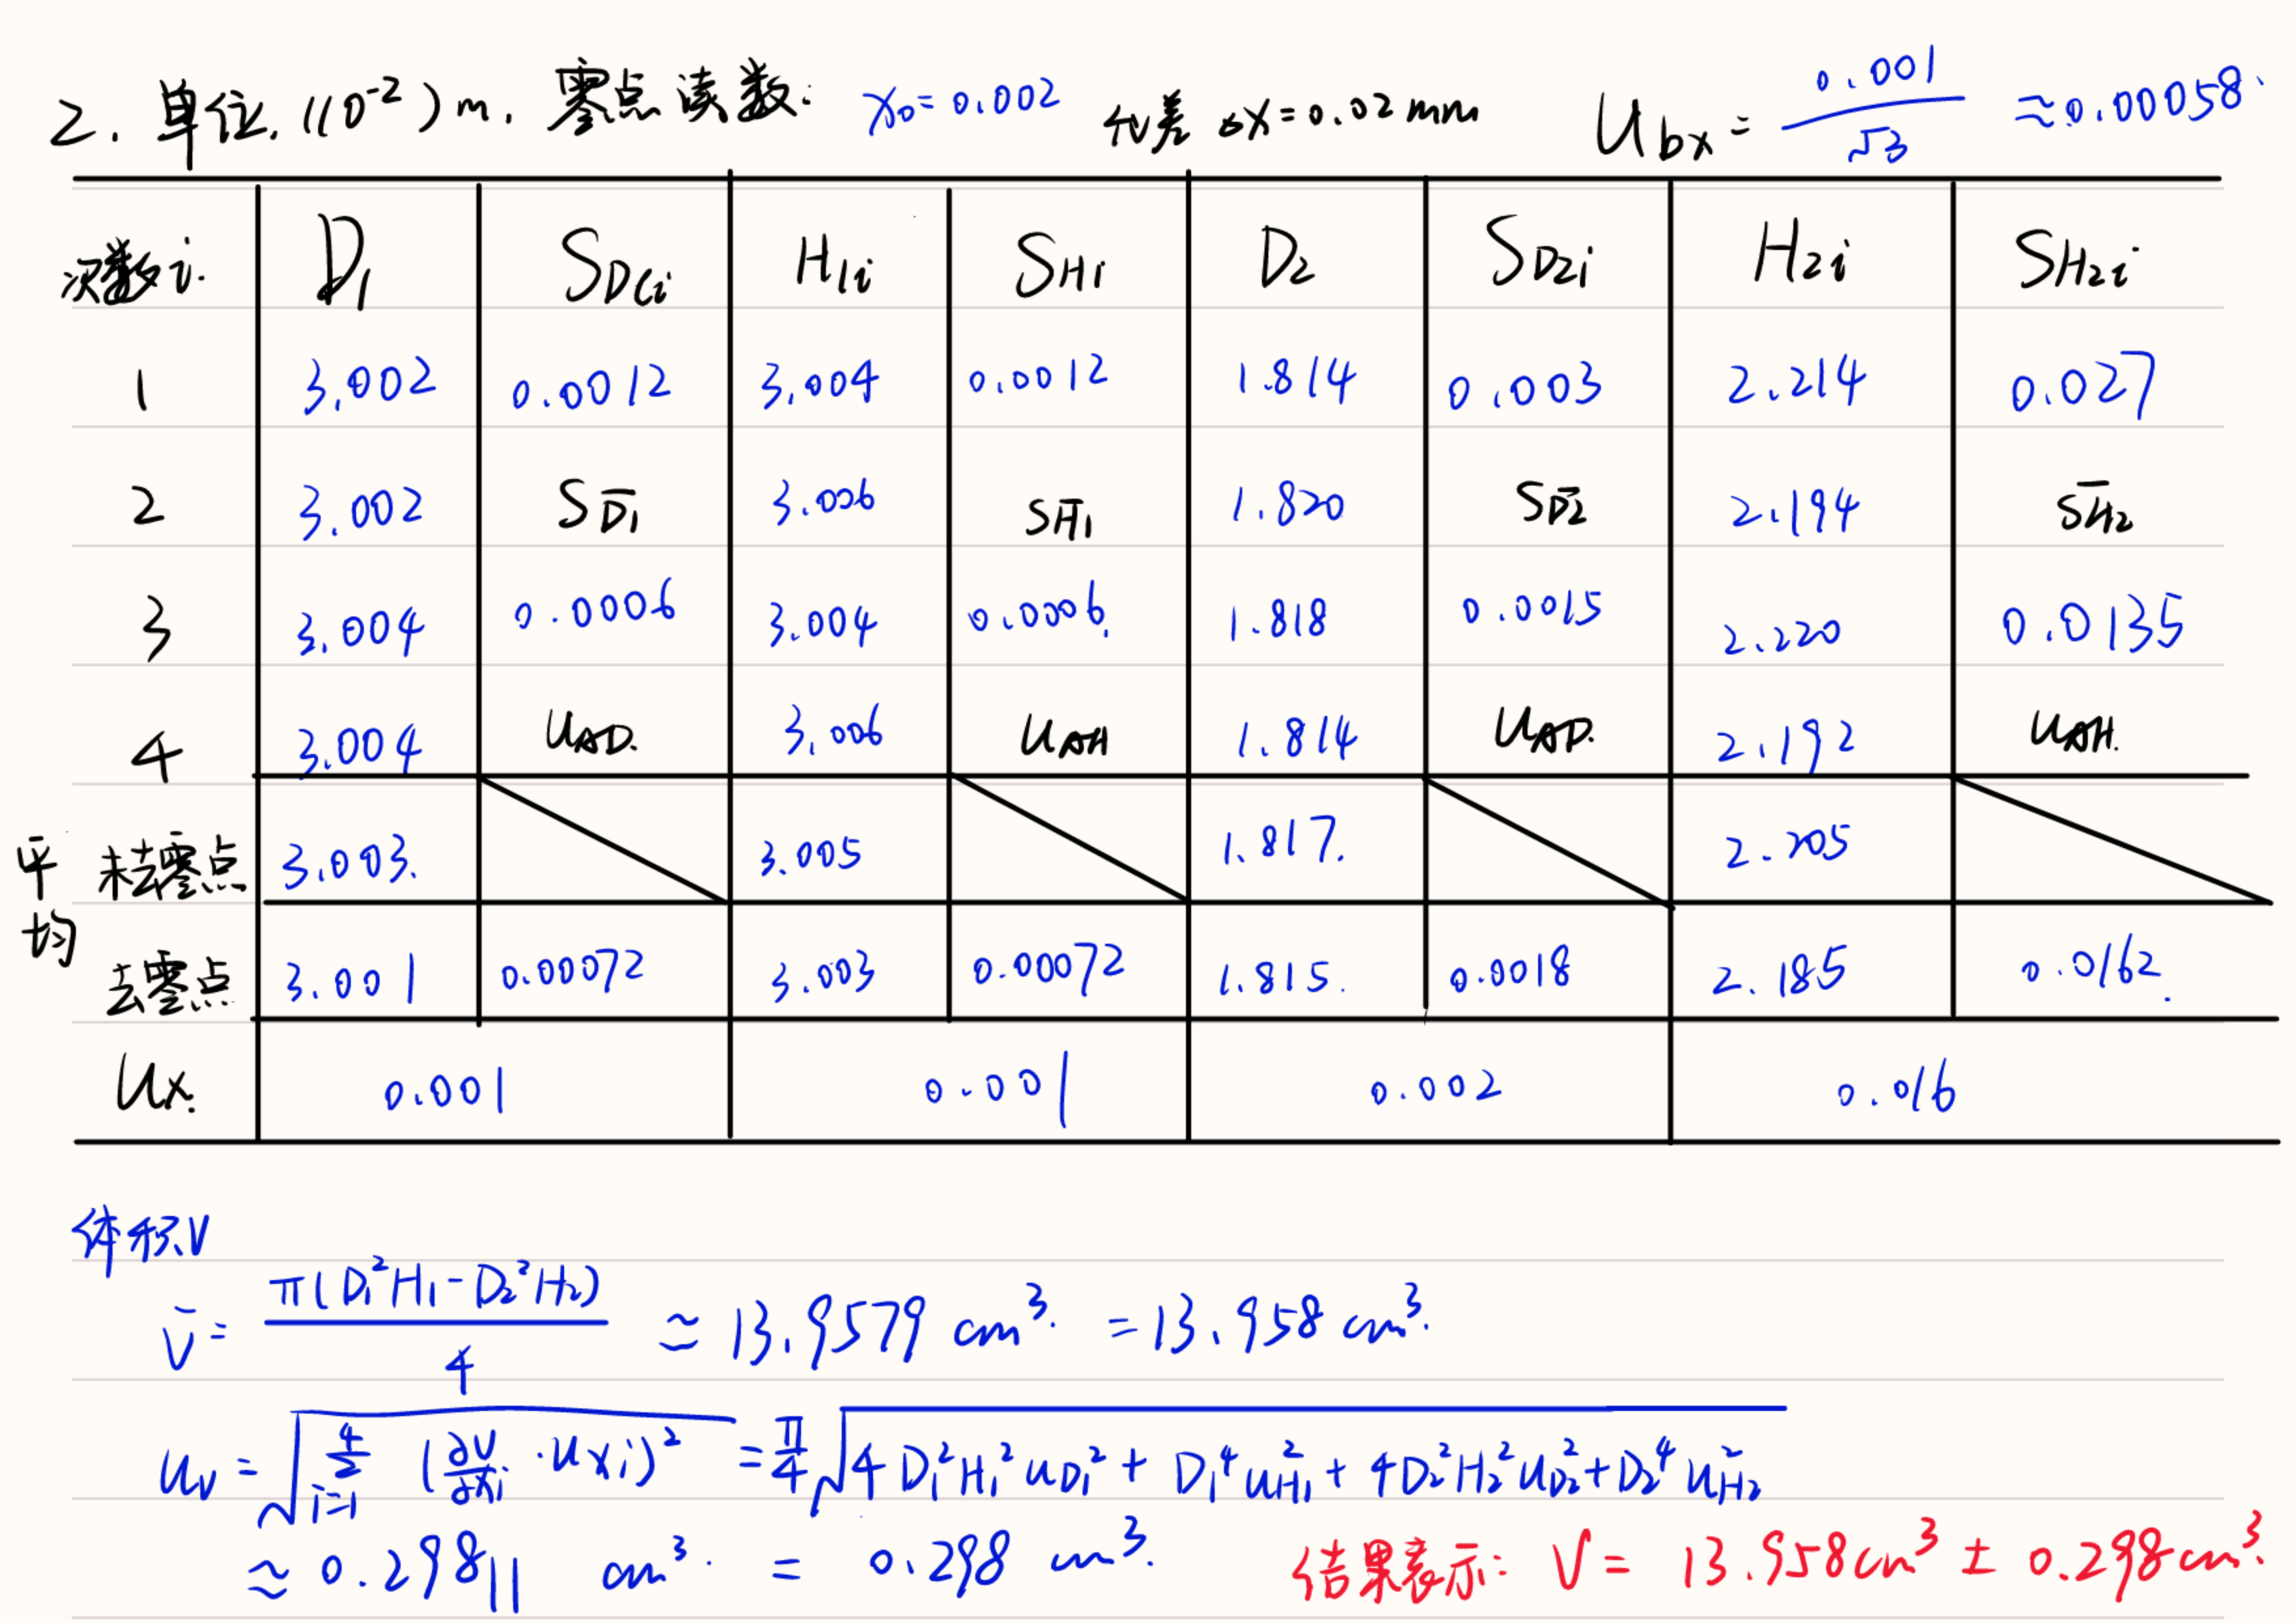 2. 单位. (10⁻²) m. 零点读数: x₀=0.002 允差 △x=0.02mm U_bx = 0.001/√3 ≈0.00058.
次数i. D₁ S_D(i H₁i S_H1 D₂ S_D2i H₂i S_H2i
1 3.002 0.0012 3.004 0.0012 1.814 0.003 2.214 0.027
2 3.002 S_D̄₁ 3.006 S_H̄₁ 1.820 S_D̄₂ 2.194 S_H̄₂
3 3.004 0.0006 3.004 0.0006. 1.818 0.0015 2.220 0.0135
4 3.004 U_AD. 3.006 U_AH 1.814 U_AD. 2.192 U_AH.
平均 未去零点 3.003. 3.005 1.817. 2.205
去零点 3.001 0.00072 3.003 0.00072 1.815. 0.0018 2.185 0.0162.
Ux. 0.001 0.001 0.002 0.016
体积V
V̄ = π(D₁²H₁-D₂²H₂)/4 ≈ 13.9579 cm³. =13.958 cm³.
u_v = √(Σ_{i=1}^{4} (∂V/∂x_i · u_xi)²) = π/4 √(4D₁²H₁²u_D₁² + D₁⁴u_H₁² + 4D₂²H₂²u_D₂² + D₂⁴u_H₂²)
≈ 0.29811 cm³. = 0.298 cm³. 结果表示: V = 13.958cm³ ± 0.298cm³.